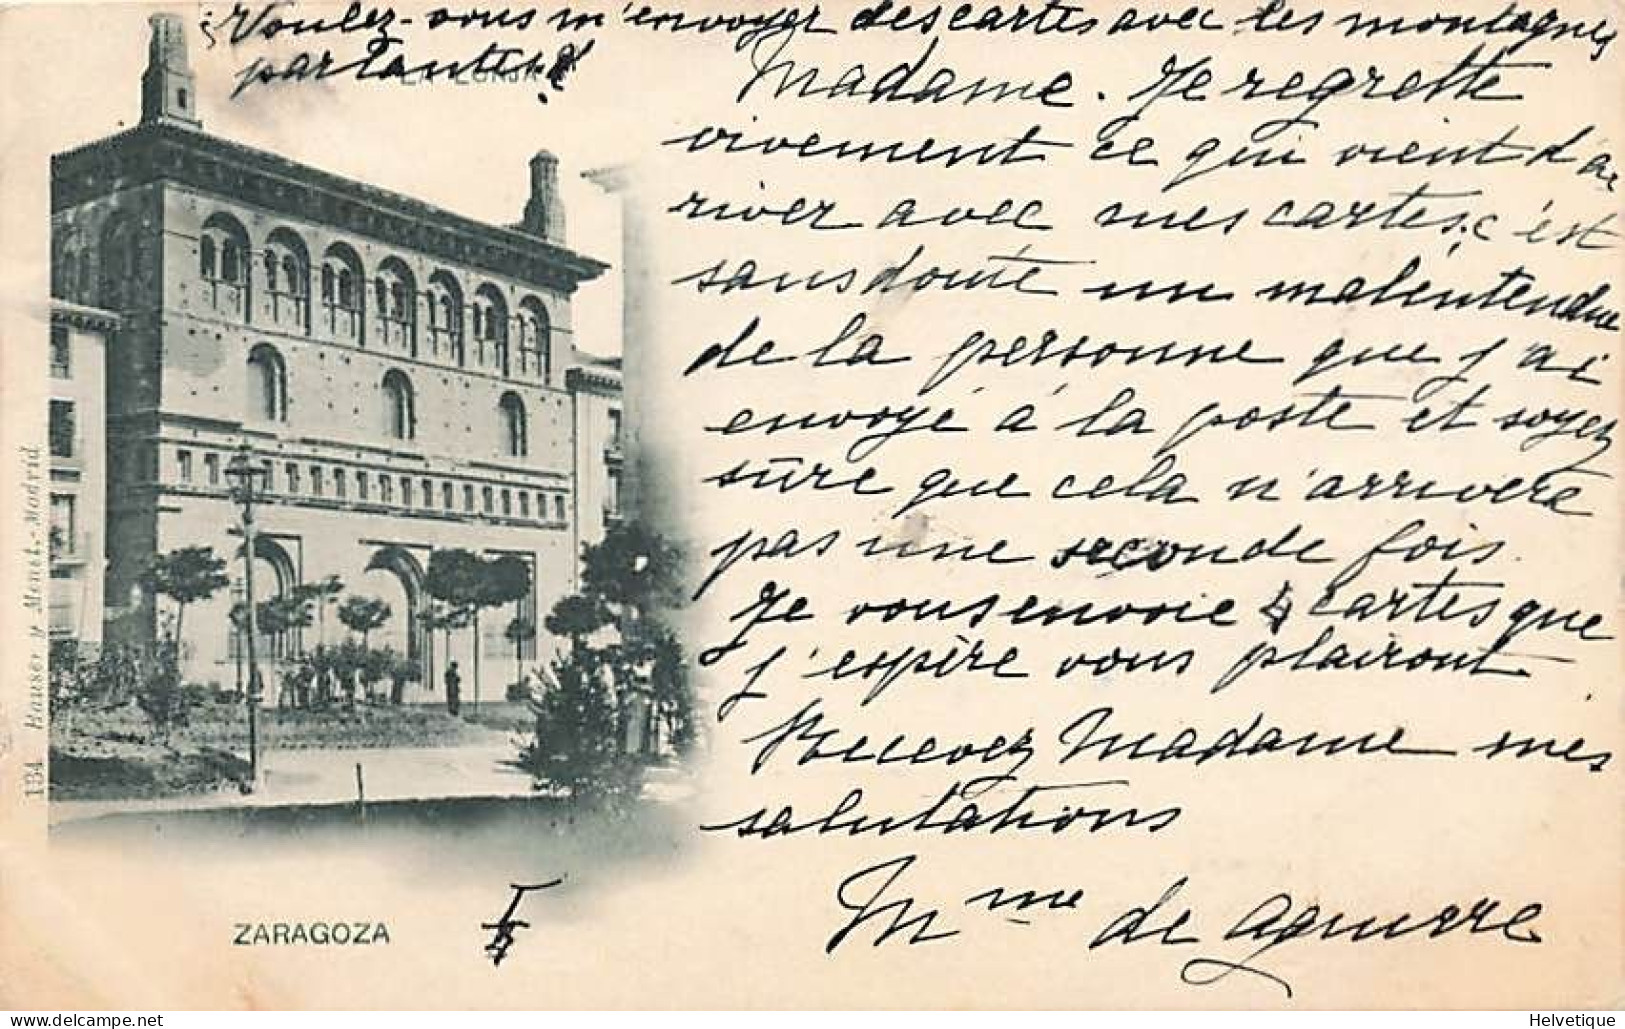 ¿Voulez-vous m'envoyer des cartes avec les montagnes
parlantes?
LA LONJA
Madame. Je regrette
vivement ce qui vient d'ar
river avec mes cartes; c'est
sans doute un malentendue
de la personne que j'ai
envoyé à la poste et soyez
sûre que cela n'arrivera
pas une seconde fois.
Je vous envoie 4 cartes que
j'espère vous plairont
Recevez Madame mes
salutations
Mme de Aguirre
134 Hauser y Menet.-Madrid
ZARAGOZA
delcampe.net
Helvetique